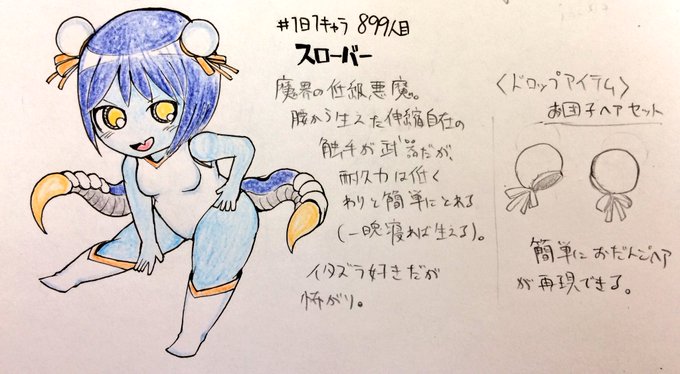 #1日1キャラ 899人目
スローバー
魔界の低級悪魔。
腰から生えた伸縮自在の
触手が武器だが、
耐久力は低く
わりと簡単にとれる
(一晩寝れば生える)。
イタズラ好きだが
怖がり。
〈ドロップアイテム〉
お団子ヘアセット
簡単におだんごヘア
が再現できる。